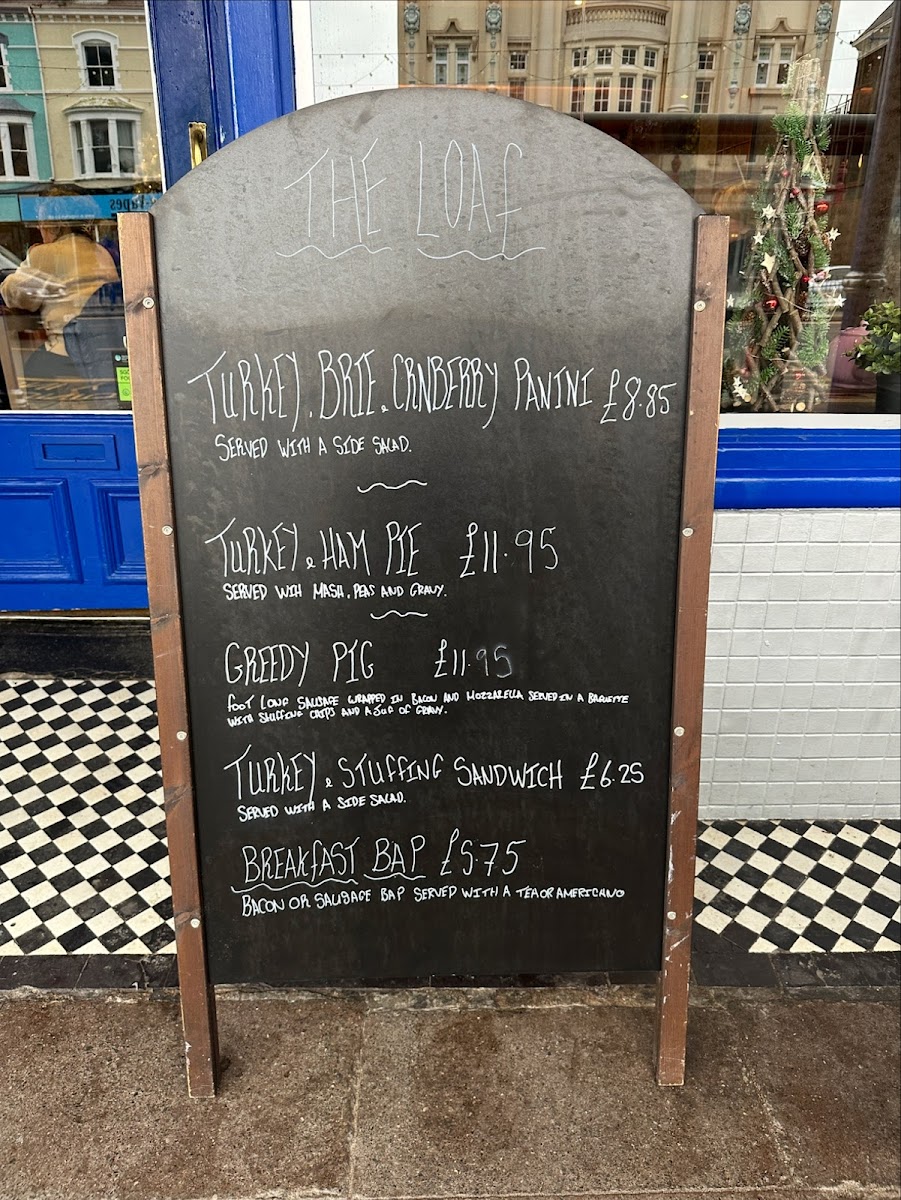 THE LOAf
TURKEY, BRIE & CRNBERRY PANINI £8.85
SERVED WITH A SIDE SALAD.
TURKEY & HAM PIE £11.95
SERVED WIH MASH, PEAS AND GRAVY.
GREEDY PIG £11.95
FOOT LONG SAUSAGE WRAPPED IN BACON AND MOZZARELLA SERVED IN A BAGUETTE
WITH STUFFING CHIPS AND A JUG OF GRAVY.
TURKEY & STUFFING SANDWICH £6.25
SERVED WITH A SIDE SALAD.
BREAKFAST BAP £5.75
BACON OR SAUSAGE BAP SERVED WITH A TEA OR AMERICANO